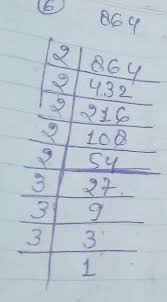 6 864
2 864
2 432
2 216
2 108
2 54
3 27
3 9
3 3
1